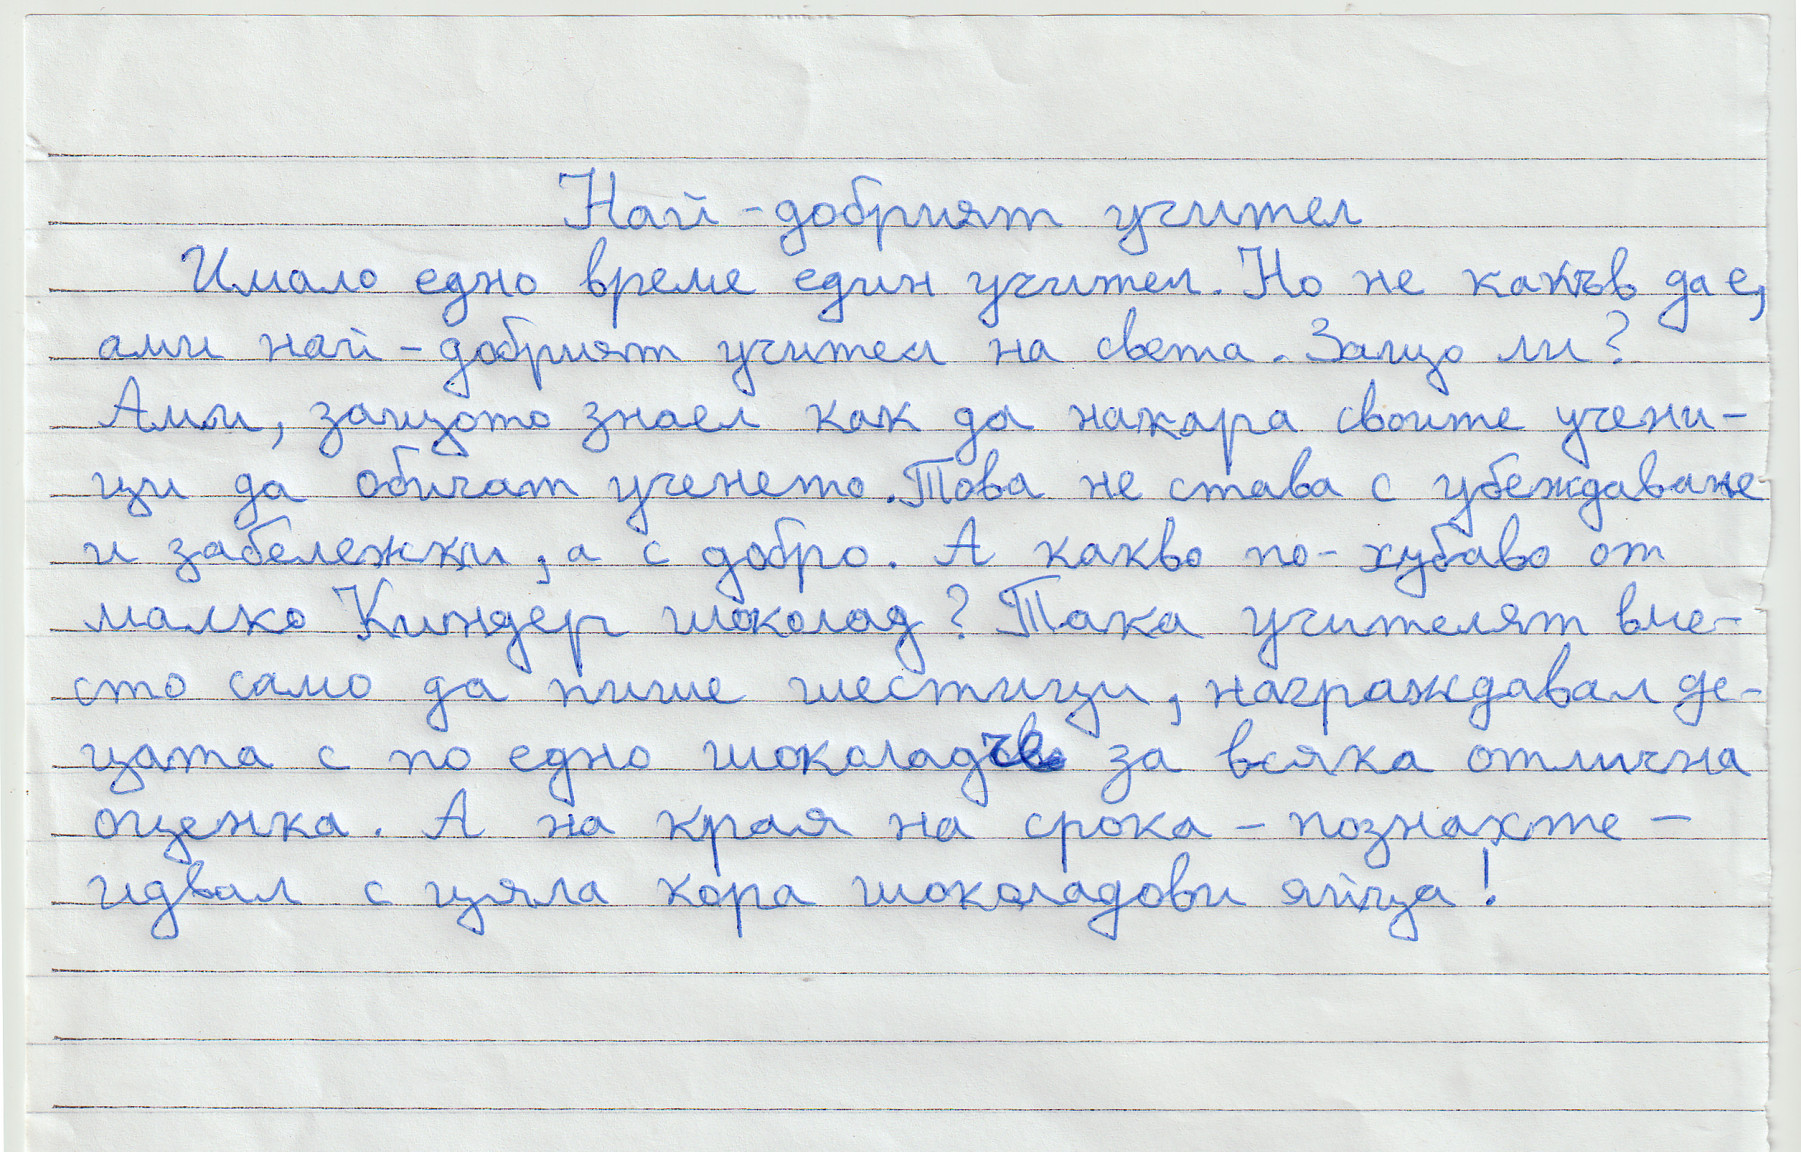 Най-добрият учител
Имало едно време един учител. Но не какъв да е,
ами най-добрият учител на света. Защо ли?
Ами, защото знаел как да накара своите учени-
ци да обичат ученето. Това не става с убеждаване
и забележки, а с добро. А какво по-хубаво от
малко Киндер шоколад? Така учителят вме-
сто само да пише шестици, награждавал де-
цата с по едно шоколадче за всяка отлична
оценка. А на края на срока – познахте –
идвал с цяла кора шоколадови яйца!